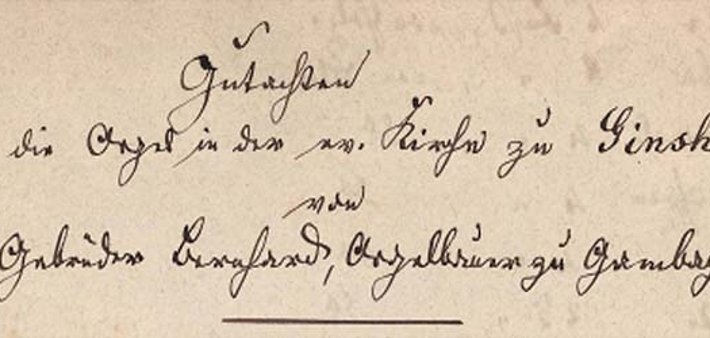 Gutachten
die Orgel in der ev. Kirche zu Ginsh
von
Gebrüder Bernhard, Orgelbauer zu Gambac